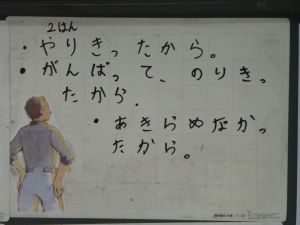 2はん
・やりきったから。
・がんばって、のりきっ
たから.
・あきらめなかっ
たから。